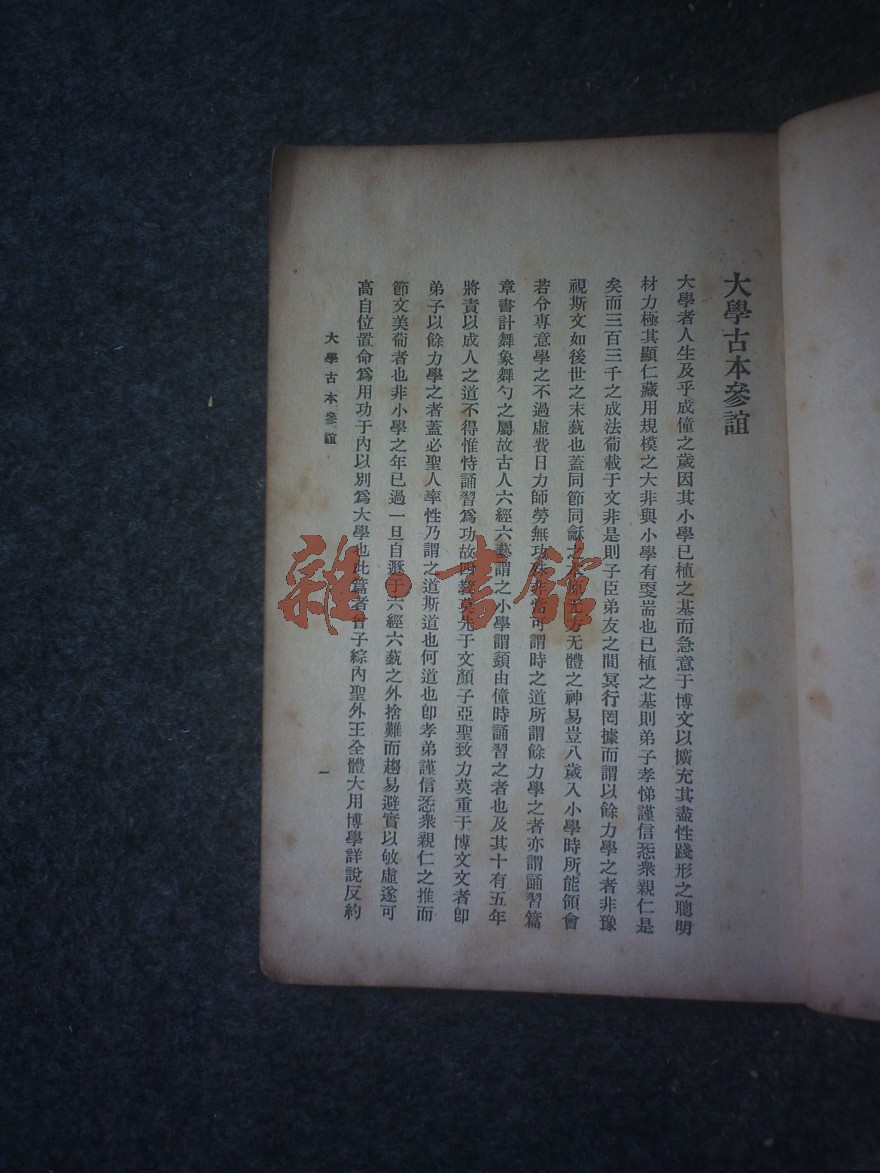 大學古本參誼
大學者人生及乎成僮之歲因其小學已植之基而急意于博文以擴充其盡性踐形之聰明
材力極其顯仁藏用規模之大非與小學有耑也已植之基則弟子孝悌謹信悉衆親仁是
矣而三百三千之成法葡載于文非是則子臣弟友之間冥行罔據而謂以餘力學之者非豫
視斯文如後世之末蓺也蓋同節同龢之本无方无體之神易豈八歲入小學時所能領會
若令専意學之不過虛費日力師勞無功可謂時之道所謂餘力學之者亦謂誦習篇
章書計舞象舞勺之屬故古人六經六蓺謂之小學謂顡由僮時誦習之者也及其十有五年
將責以成人之道不得惟恃誦習爲功故四教莫先于文顏子亞聖致力莫重于博文文者卽
弟子以餘力學之者蓋必聖人率性乃謂之道斯道也何道也卽孝弟謹信悉衆親仁之推而
節文美葡者也非小學之年已過一旦自遯于六經六蓺之外捨難而趨易避實以敂虛遂可
高自位置命爲用功于內以別爲大學也此篇者曾子綜內聖外王全體大用博學詳說反約
大學古本參誼
一
雜·書館